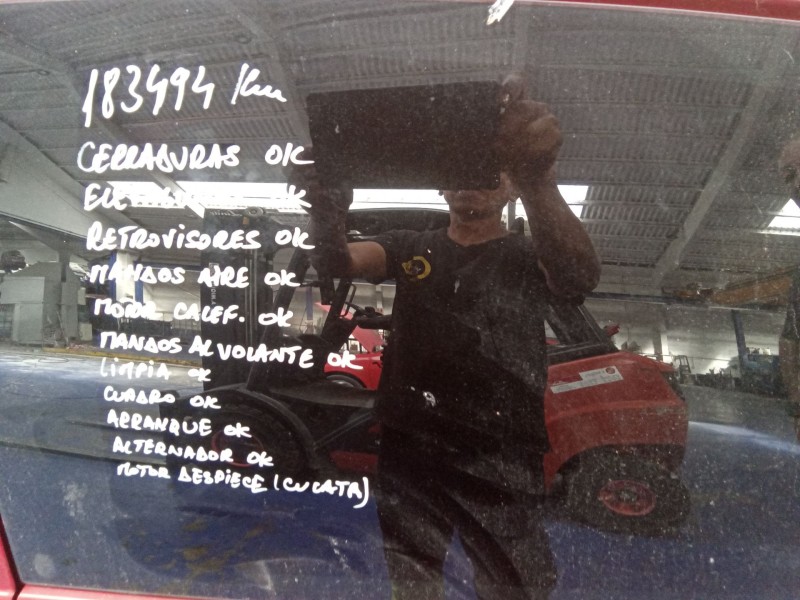 183494 Km
CERRADURAS OK
OK
RETROVISORES OK
MANDOS AIRE OK
MOTOR CALEF. OK
MANDOS AL VOLANTE OK
LIMPIA OK
CUADRO OK
ARRANQUE OK
ALTERNADOR OK
MOTOR DESPIECE (CULATA)